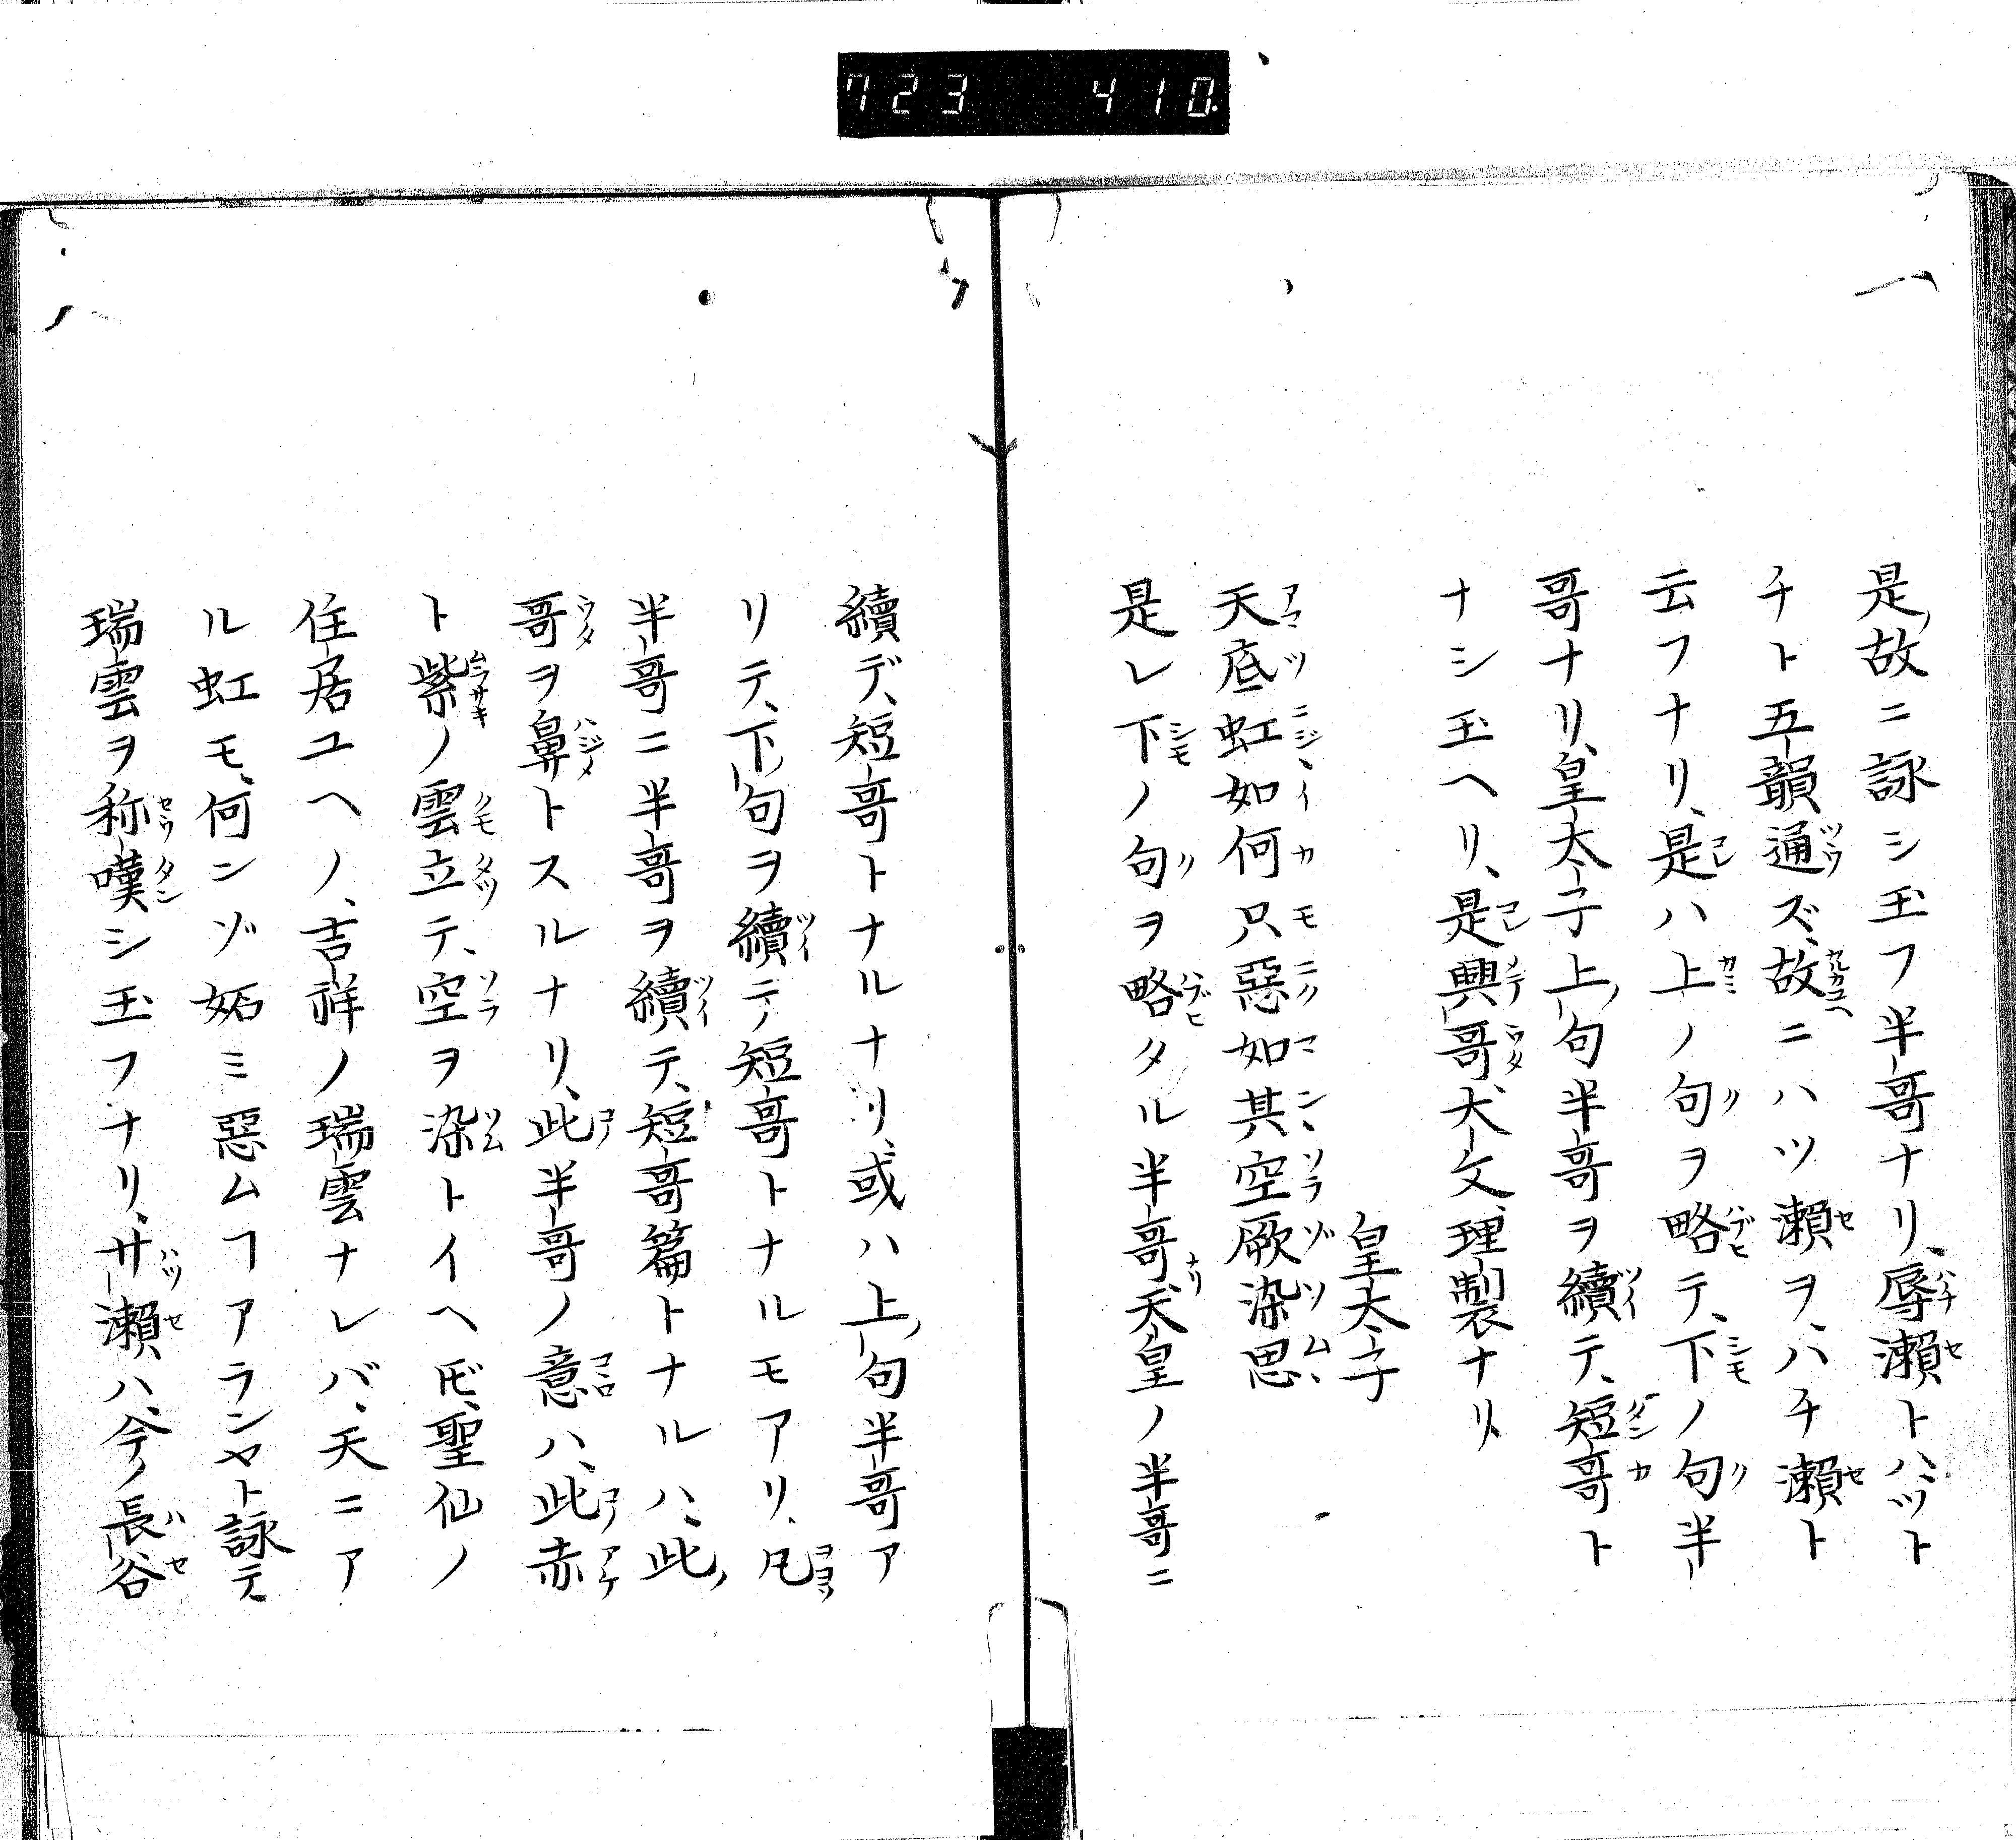 723 410
是ノ故ニ詠シ玉フ半哥ナリ、辱瀬トハハツト
チト五韻通ズ、故ニハツ瀬ヲ、ハチ瀬ト
云フナリ、是ハ上ノ句ヲ略テ、下ノ句半
哥ナリ、皇太子上ノ句半哥ヲ續テ、短哥ト
ナシ玉ヘリ、是興哥大文、理製ナリ、
皇太子
天底虹如何只惡如其空厥染思
是レ下ノ句ヲ略タル半哥ナリ天皇ノ半哥ニ
續デ、短哥トナルナリ、或ハ上ノ句半哥ア
リテ、下句ヲ續テ短哥トナルモアリ、凡
半哥ニ半哥ヲ續テ、短哥篇トナルハ、此ノ
哥ヲ鼻トスルナリ、此半哥ノ意ハ、此赤
ト紫ノ雲立テ、空ヲ染トイヘ𪜈、聖仙ノ
住居ユヘノ、吉祥ノ瑞雲ナレバ、天ニア
ル虹モ、何ンゾ妬ミ惡ムヿアランヤト詠テ、
瑞雲ヲ称嘆シ玉フナリ、廿瀬ハ、今ノ長谷